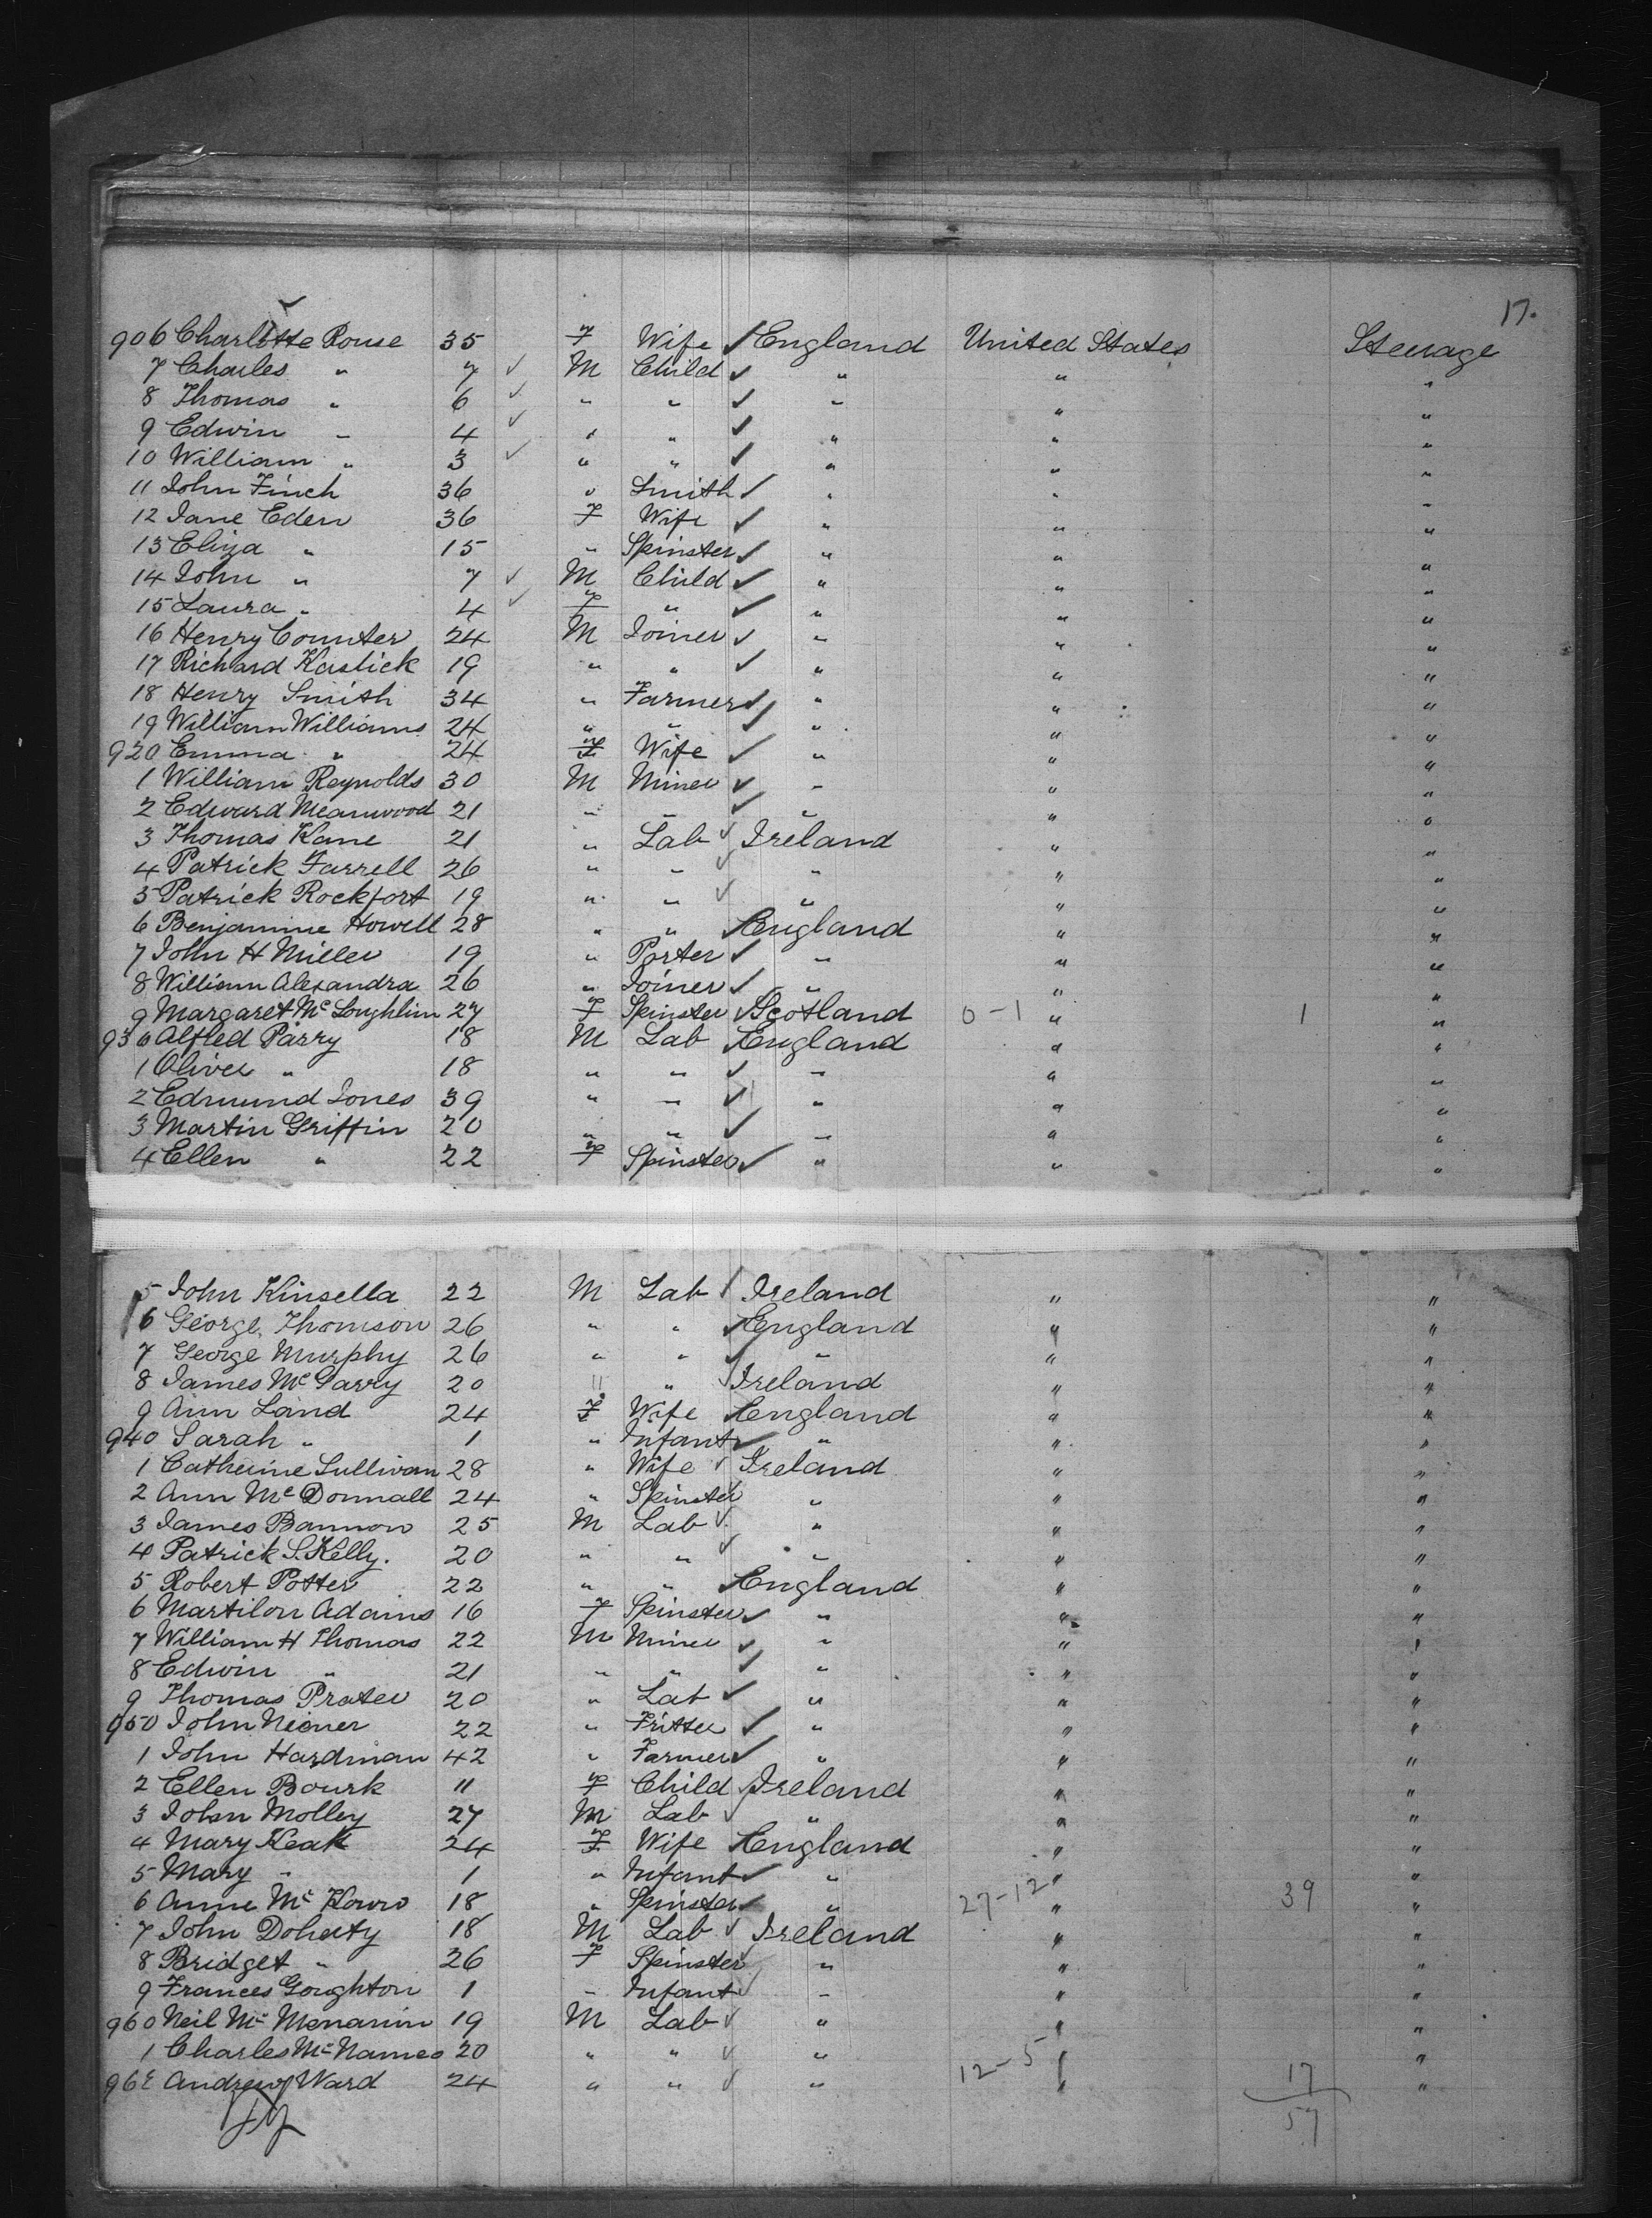 17.
906 Charlotte Rouse 35 F Wife ✓ England United States Steerage
7 Charles " 7 ✓ M Child ✓ " " "
8 Thomas " 6 ✓ " " ✓ " " "
9 Edwin " 4 ✓ " " ✓ " " "
10 William " 3 ✓ " " ✓ " " "
11 John Finch 36 " Smith ✓ " " "
12 Jane Eden 36 F Wife ✓ " " "
13 Eliza " 15 " Spinster ✓ " " "
14 John " 7 ✓ M Child ✓ " " "
15 Laura " 4 ✓ F " ✓ " " "
16 Henry Counter 24 M Joiner ✓ " " "
17 Richard Kastick 19 " " ✓ " " "
18 Henry Smith 34 " Farmer ✓ " " "
19 William Williams 24 " " ✓ " " "
920 Emma " 24 F Wife ✓ " " "
1 William Reynolds 30 M Miner ✓ " " "
2 Edward Meanwood 21 " " ✓ " " "
3 Thomas Kane 21 " Lab ✓ Ireland " "
4 Patrick Farrell 26 " " ✓ " " "
5 Patrick Rockfort 19 " " ✓ " " "
6 Benjamine Howell 28 " " ✓ England " "
7 John H Miller 19 " Porter ✓ " " "
8 William Alexandra 26 " Joiner ✓ " " "
9 Margaret Mc Loughlin 27 F Spinster ✓ Scotland 0-1 " 1 "
930 Alfled Parry 18 M Lab ✓ England " "
1 Oliver " 18 " " ✓ " " "
2 Edmund Jones 39 " " ✓ " " "
3 Martin Griffin 20 " " ✓ " " "
4 Ellen " 22 F Spinster ✓ " " "
5 John Kinsella 22 M Lab ✓ Ireland " "
6 George Thomson 26 " " ✓ England " "
7 George Murphy 26 " " ✓ " " "
8 James Mc Garry 20 " " ✓ Ireland " "
9 Ann Land 24 F Wife ✓ England " "
940 Sarah " 1 " Infant ✓ " " "
1 Catherine Sullivan 28 " Wife ✓ Ireland " "
2 Ann Mc Donnall 24 " Spinster ✓ " " "
3 James Bannon 25 M Lab ✓ " " "
4 Patrick S. Kelly. 20 " " ✓ " " "
5 Robert Potter 22 " " ✓ England " "
6 Martilon Adams 16 F Spinster ✓ " " "
7 William H Thomas 22 M Miner ✓ " " "
8 Edwin " 21 " " ✓ " " "
9 Thomas Prater 20 " Lab ✓ " " "
950 John 22 " Fritter ✓ " " "
1 John Hardman 42 " Farmer ✓ " " "
2 Ellen Bourk 11 F Child ✓ Ireland " "
3 John Molley 27 M Lab ✓ " " "
4 Mary Keak 24 F Wife ✓ England " "
5 Mary " 1 " Infant ✓ " " "
6 Anne Mc 18 " Spinster ✓ " 27-12 " 39 "
7 John Doherty 18 M Lab ✓ Ireland " "
8 Bridget " 26 F Spinster ✓ " " "
9 Frances Goughton 1 " Infant ✓ " " "
960 Neil Mc Menamin 19 M Lab ✓ " " "
1 Charles Mc Names 20 " " ✓ " " "
962 Andrew Ward 24 " " ✓ " 12-5 " 17 "
57